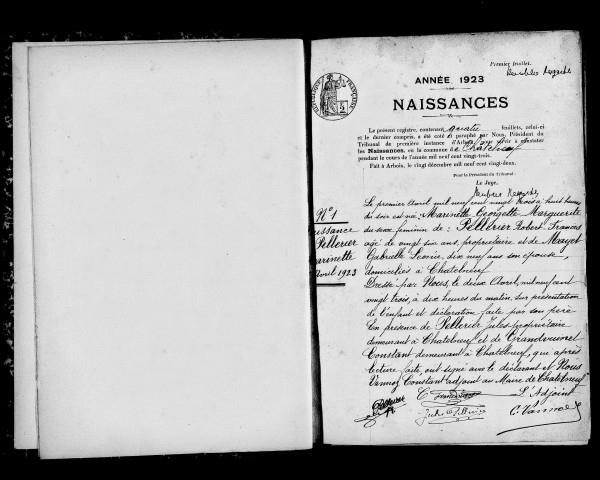 Premier feuillet.
ANNÉE 1923
NAISSANCES
RÉPUBLIQUE FRANÇAISE
Le présent registre, contenant quatre feuillets, celui-ci
et le dernier compris, a été coté et paraphé par Nous, Président du
Tribunal de première instance d'Arbois, pour servir à constater
les Naissances, en la commune de Chatelneuf
pendant le cours de l'année mil neuf cent vingt-trois.
Fait à Arbois, le vingt décembre mil neuf cent vingt-deux.
Pour le Président du Tribunal :
Le Juge,
N°1
issance
Pellerier
arinette
avril 1923
Le premier Avril mil neuf cent vingt trois à huit heures
du soir est née : Marinette Georgette Marguerite
du sexe féminin de : Pellerier Robert Francois
age de vingt six ans, propriétaire et de Mayet
Gabrielle Léonie, dix neuf ans son épouse,
domiciliés à Chatelneuf
Dressé par Nous, le deux Avril, mil neuf cent
vingt trois, à dix heures du matin, sur présentation
de l'enfant et déclaration faite par son père
En présence de Pellerier Jules propriétaire
demeurant à Chatelneuf et de Grandvuinet
Constant demeurant à Chatelneuf, qui après
lecture faite, ont signé avec le déclarant et Nous
Vannoz Constant adjoint au Maire de Chatelneuf
Pellerier
L'Adjoint
Jules Pellerier
C. Vannoz